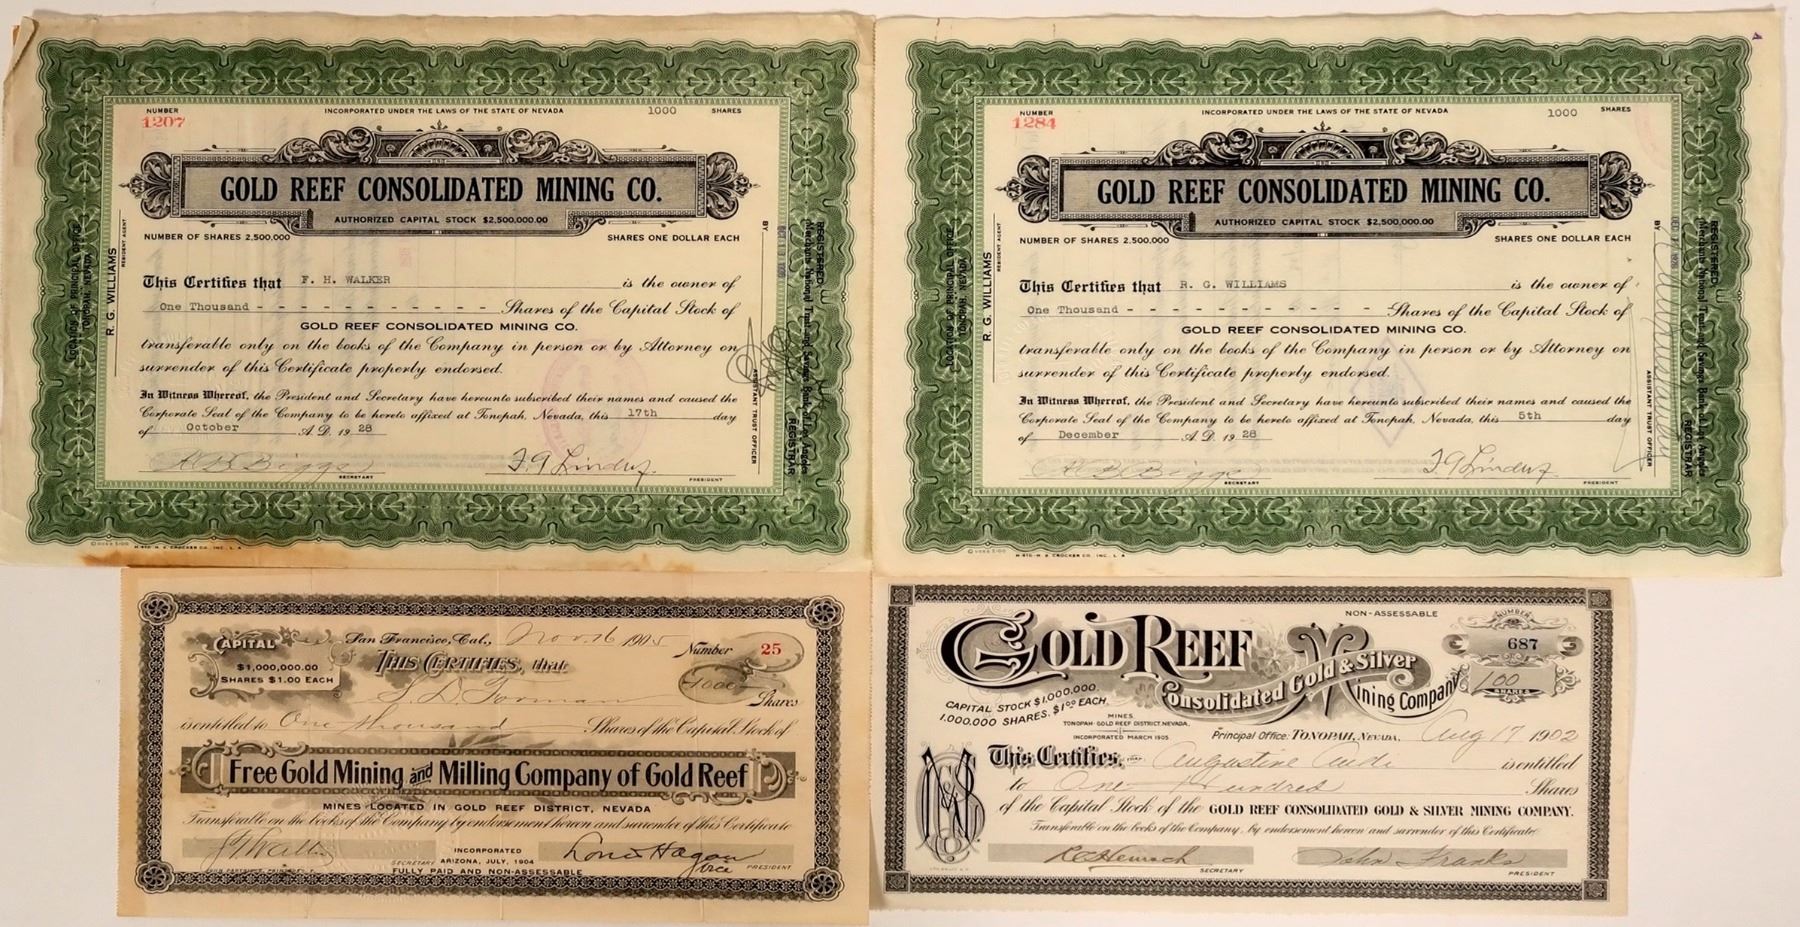 NUMBER
1207
INCORPORATED UNDER THE LAWS OF THE STATE OF NEVADA
1000 SHARES
GOLD REEF CONSOLIDATED MINING CO.
AUTHORIZED CAPITAL STOCK $2,500,000.00
NUMBER OF SHARES 2,500,000
SHARES ONE DOLLAR EACH
This Certifies that F. H. WALKER is the owner of
One Thousand - - - - - - - - - - - - Shares of the Capital Stock of
GOLD REEF CONSOLIDATED MINING CO.
transferable only on the books of the Company in person or by Attorney on
surrender of this Certificate properly endorsed.
In Witness Whereof, the President and Secretary have hereunto subscribed their names and caused the
Corporate Seal of the Company to be hereto affixed at Tonopah, Nevada, this 17th day
of October A.D. 1928
SECRETARY
PRESIDENT
LOCATION OF PRINCIPAL OFFICE
TONOPAH, NEVADA
R. G. WILLIAMS
RESIDENT AGENT
REGISTERED
Merchants National Trust and Savings Bank of Los Angeles
REGISTRAR
BY
ASSISTANT TRUST OFFICER
NUMBER
1284
INCORPORATED UNDER THE LAWS OF THE STATE OF NEVADA
1000 SHARES
GOLD REEF CONSOLIDATED MINING CO.
AUTHORIZED CAPITAL STOCK $2,500,000.00
NUMBER OF SHARES 2,500,000
SHARES ONE DOLLAR EACH
This Certifies that R. G. WILLIAMS is the owner of
One Thousand - - - - - - - - - - - - Shares of the Capital Stock of
GOLD REEF CONSOLIDATED MINING CO.
transferable only on the books of the Company in person or by Attorney on
surrender of this Certificate properly endorsed.
In Witness Whereof, the President and Secretary have hereunto subscribed their names and caused the
Corporate Seal of the Company to be hereto affixed at Tonopah, Nevada, this 5th day
of December A.D. 1928
SECRETARY
PRESIDENT
LOCATION OF PRINCIPAL OFFICE
TONOPAH, NEVADA
R. G. WILLIAMS
RESIDENT AGENT
REGISTERED
Merchants National Trust and Savings Bank of Los Angeles
REGISTRAR
BY
ASSISTANT TRUST OFFICER
CAPITAL
$1,000,000.00
SHARES $1.00 EACH
San Francisco, Cal., Nov. 16 1905
Number 25
THIS CERTIFIES, that
1000 Shares
is entitled to One thousand Shares of the Capital Stock of
Free Gold Mining and Milling Company of Gold Reef
MINES LOCATED IN GOLD REEF DISTRICT, NEVADA
Transferable on the books of the Company by endorsement hereon and surrender of this Certificate
INCORPORATED
ARIZONA, JULY, 1904
FULLY PAID AND NON-ASSESSABLE
SECRETARY
Vice PRESIDENT
NON-ASSESSABLE
NUMBER
687
100
SHARES
GOLD REEF
Consolidated Gold & Silver
Mining Company
CAPITAL STOCK $1,000,000.
1,000,000 SHARES, $1.00 EACH.
MINES
TONOPAH-GOLD REEF DISTRICT, NEVADA.
INCORPORATED MARCH 1905
Principal Office: TONOPAH, NEVADA, Aug 17 1902
This Certifies, that Augustine Audi is entitled
to One Hundred Shares
of the Capital Stock of the GOLD REEF CONSOLIDATED GOLD & SILVER MINING COMPANY.
Transferable on the books of the Company, by endorsement hereon and surrender of this Certificate.
SECRETARY
John Franks
PRESIDENT